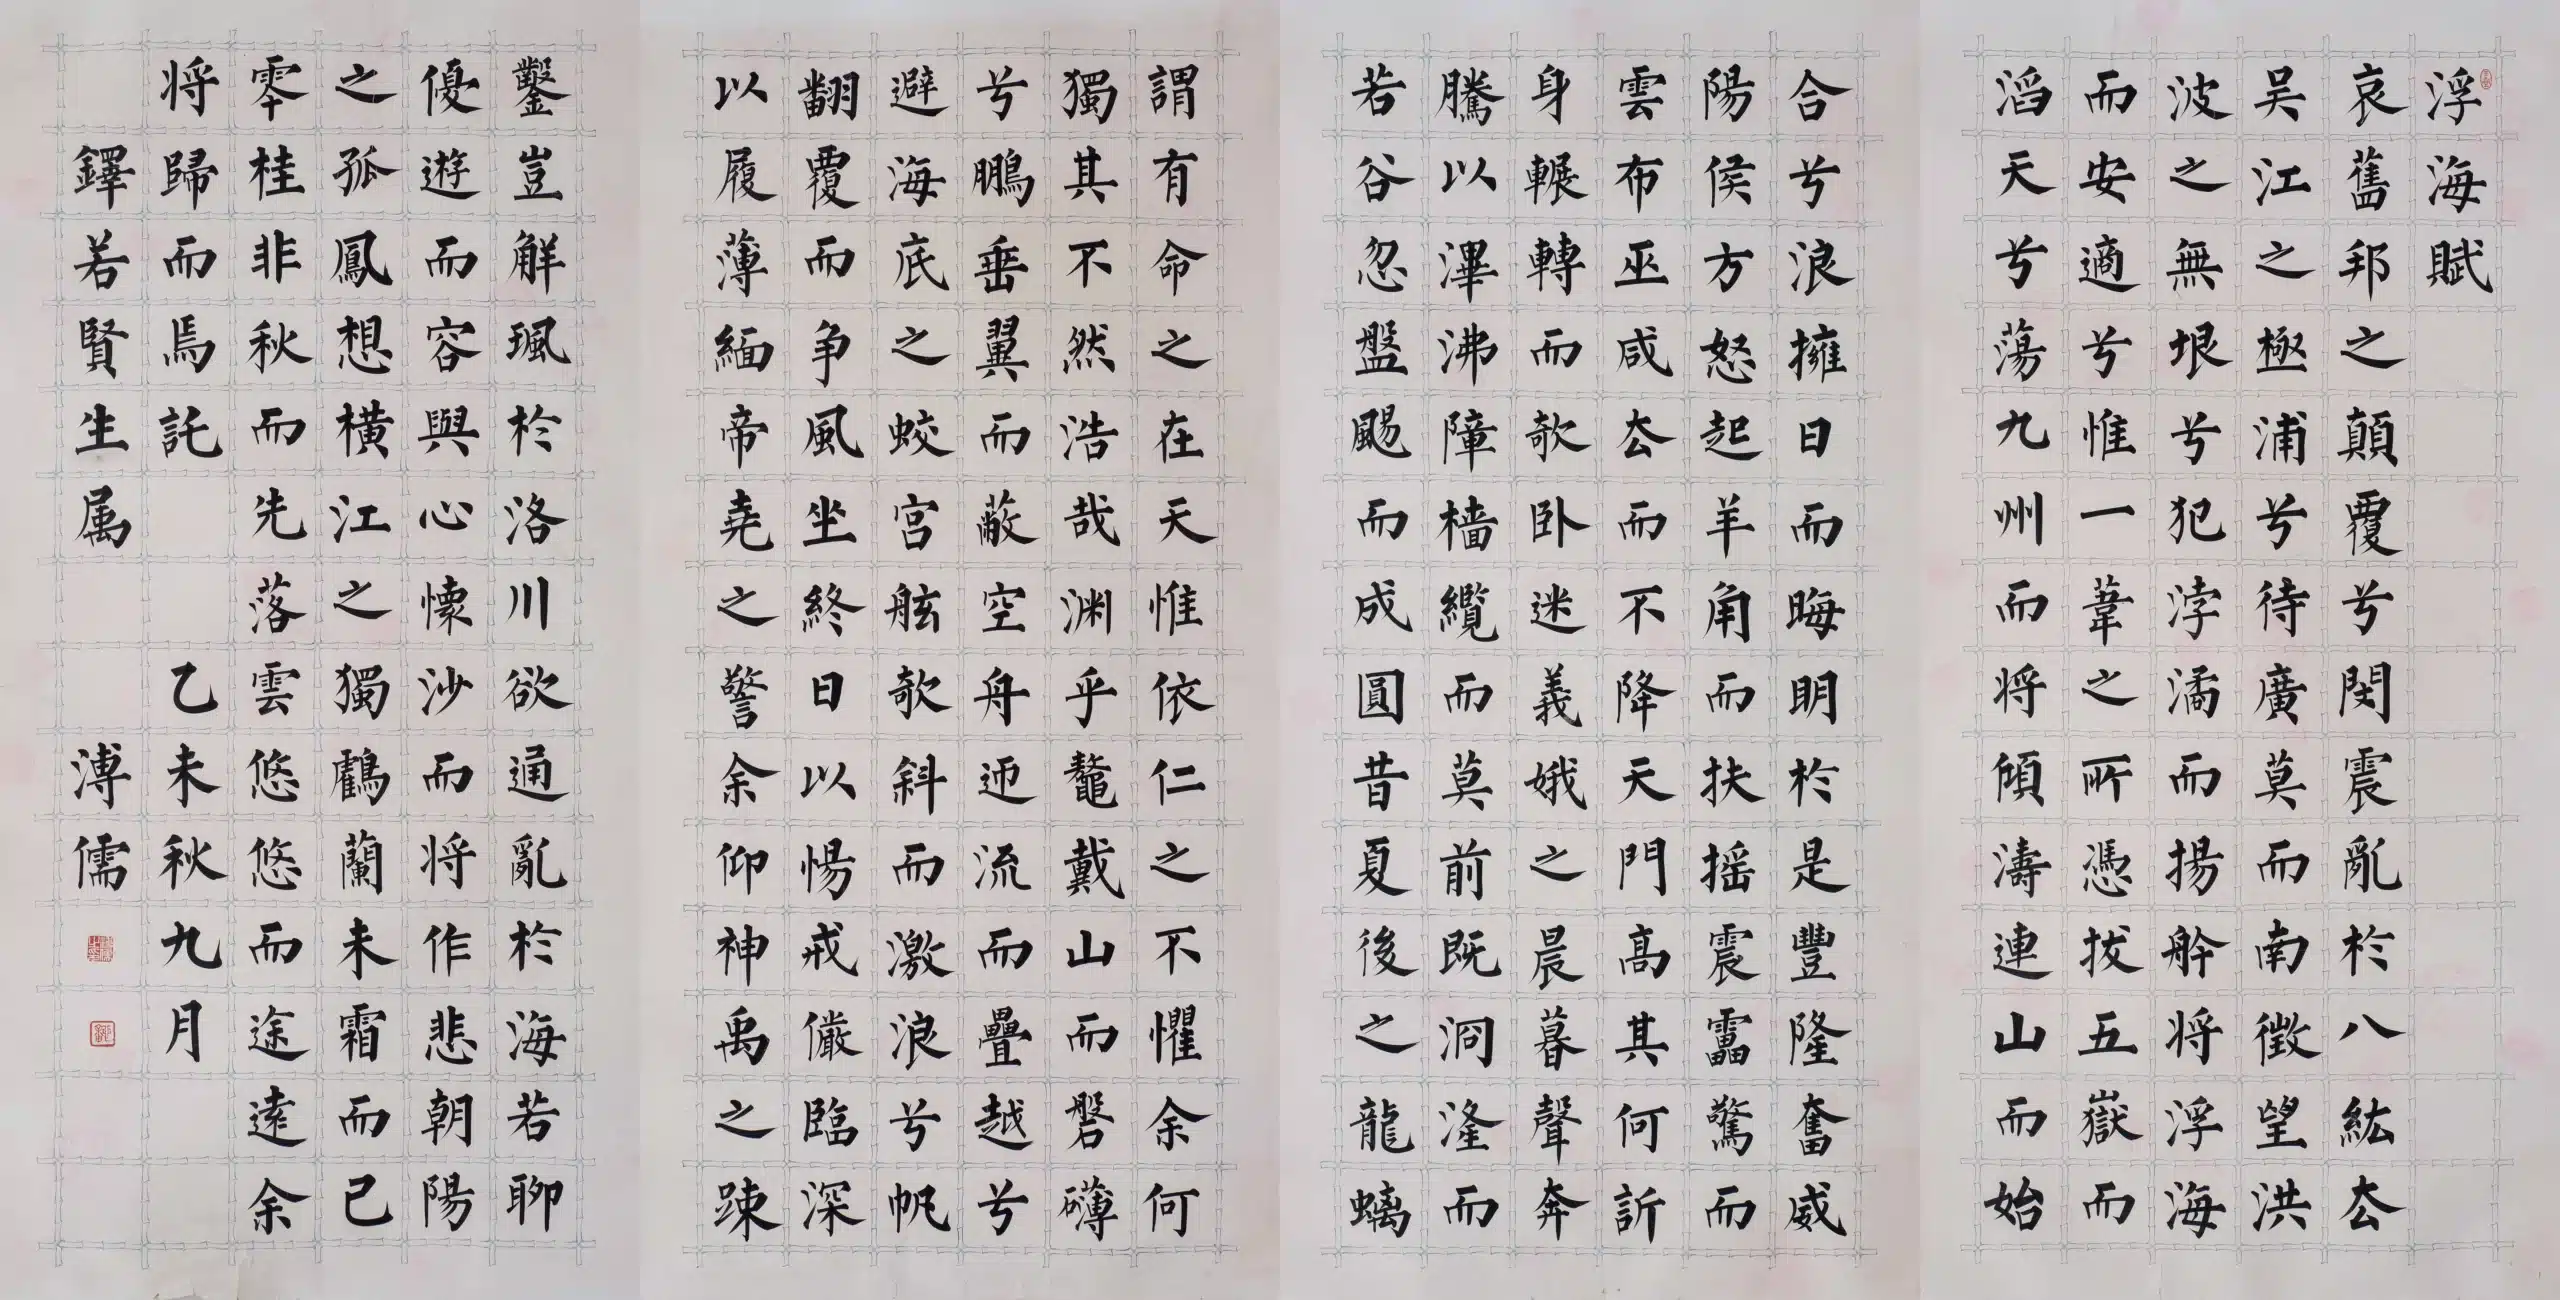 浮海賦
哀舊邦之顛覆兮閔震亂於八紘厺
吴江之極浦兮待廣莫而南徵望洪
波之無垠兮犯浡潏而揚舲将浮海
而安適兮惟一葦之所憑拔五嶽而
滔天兮蕩九州而将傾濤連山而始
合兮浪擁日而晦明於是豐隆奮威
陽侯方怒起羊角而扶摇震靁驚而
雲布巫咸厺而不降天門高其何訴
身輾轉而欹卧迷義娥之晨暮聲奔
騰以滭沸障檣纜而莫前既泂湰而
若谷忽盤颺而成圓昔夏後之龍螭
謂有命之在天惟依仁之不懼余何
獨其不然浩哉渊乎鼇戴山而磐礴
兮鵬垂翼而蔽空舟逥流而疊越兮
避海底之蛟宫舷欹斜而激浪兮帆
翻覆而争風坐終日以惕戒儼臨深
以履薄緬帝堯之警余仰神禹之疎
鑿豈解珮於洛川欲通亂於海若聊
優遊而容與心懷沙而将作悲朝陽
之孤鳳想横江之獨鸖蘭未霜而已
零桂非秋而先落雲悠悠而途遠余
将歸而焉託 乙未秋九月
鐸若賢生属 溥儒